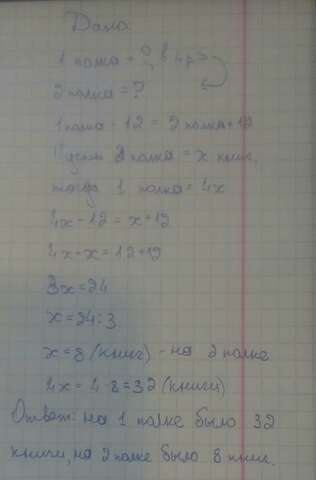 Дано:
1 полка - ?, в 4 р >
2 полка = ?
1 полка - 12 = 2 полка + 12
Пусть 2 полка = x книг,
тогда 1 полка = 4x
4x - 12 = x + 12
4x - x = 12 + 12
3x = 24
x = 24 : 3
x = 8 (книг) - на 2 полке
4x = 4 · 8 = 32 (книги)
Ответ: на 1 полке было 32
книги, на 2 полке было 8 книг.